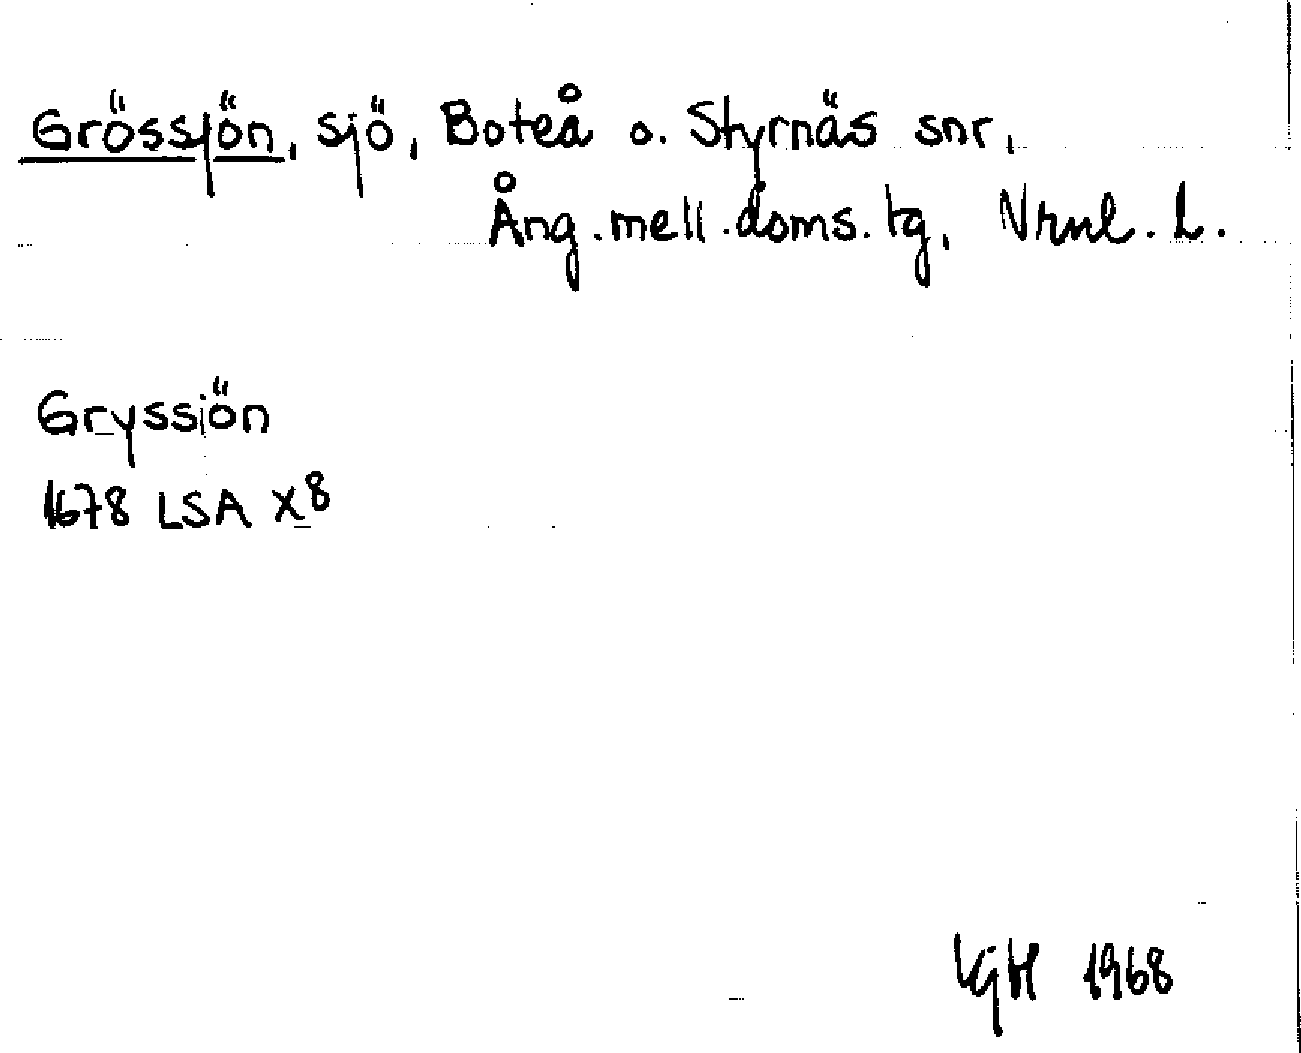 Grössjön, sjö, Boteå o. Styrnäs snr,
Ång.mell.doms.tg, Vrnl. L.
Gryssiön
1678 LSA X8
1968